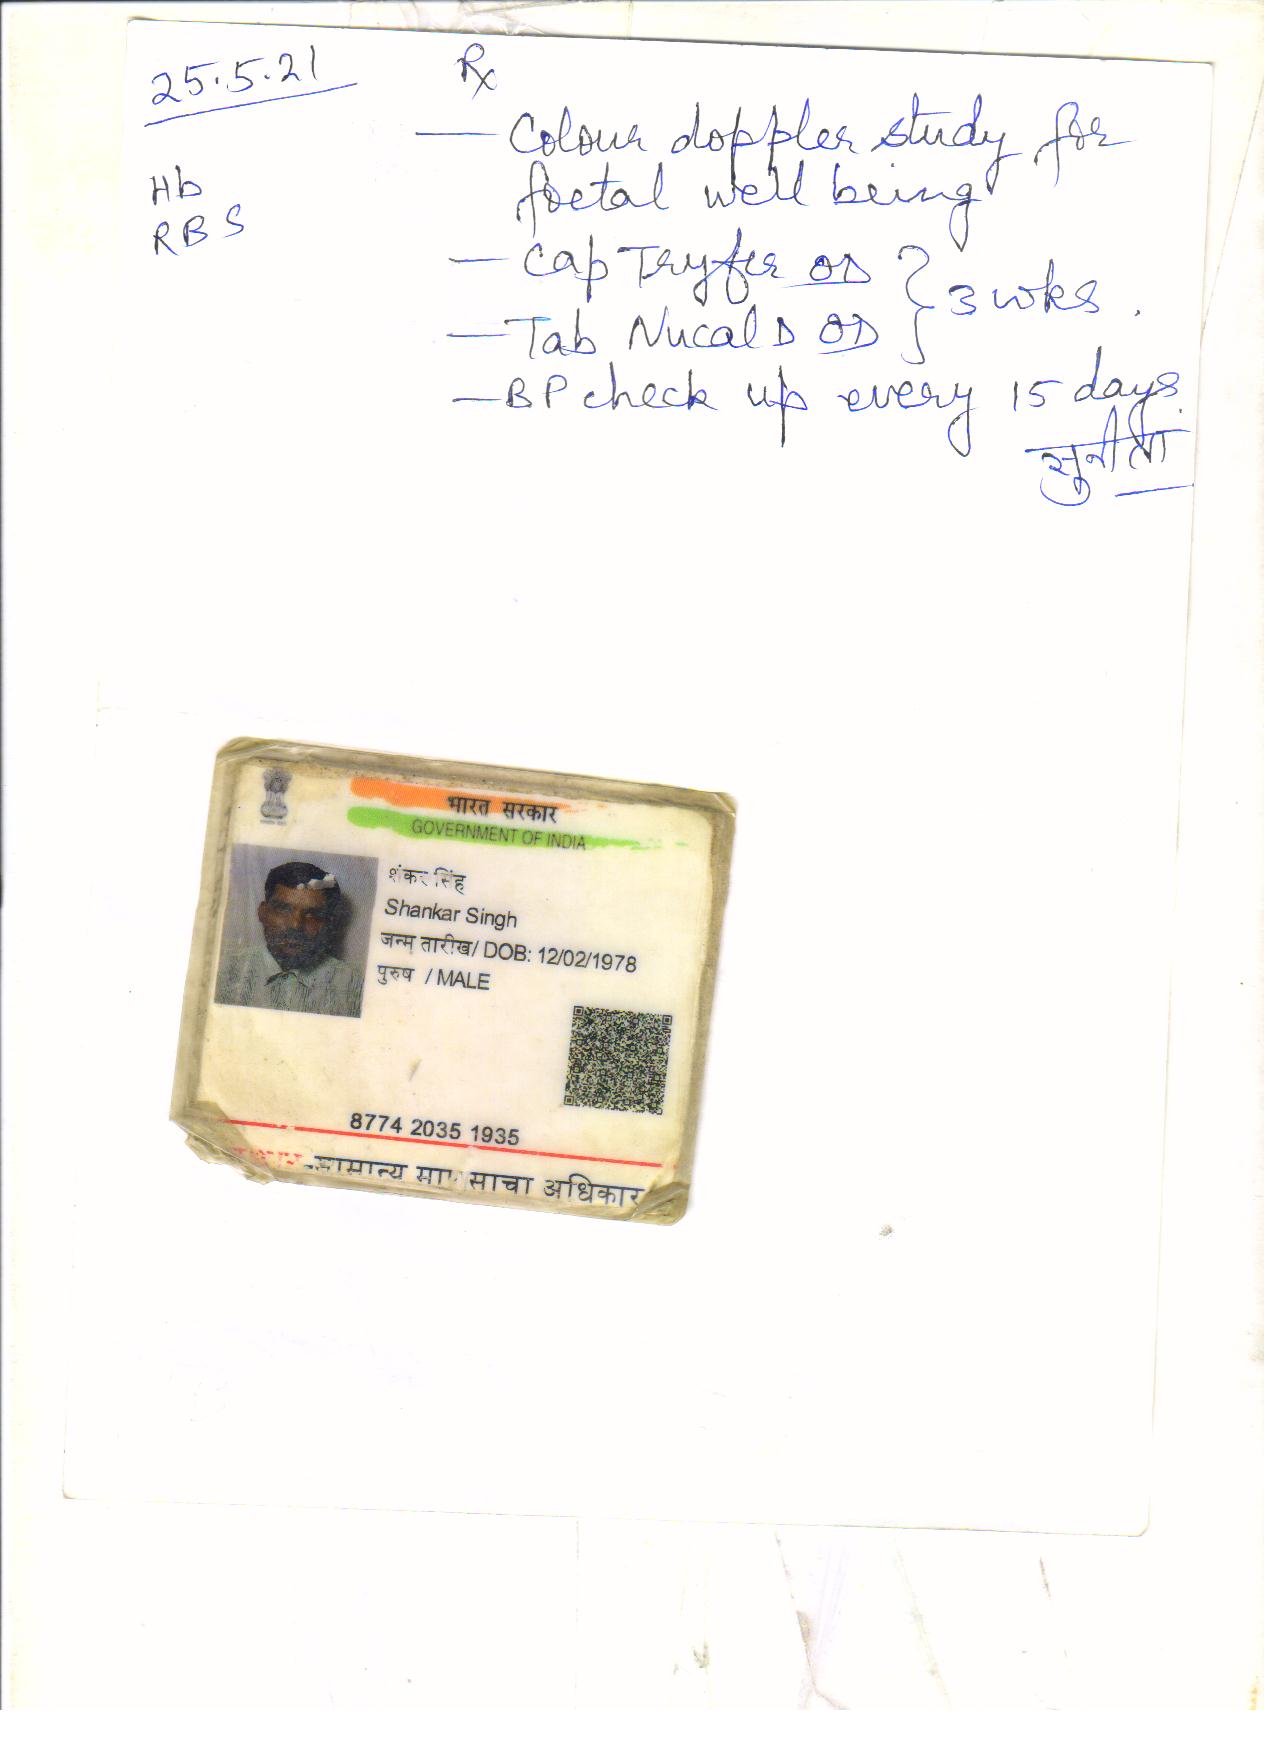 25.5.21
Rx
— Colour doppler study for
foetal well being
Hb
RBS
— Cap Tryfer OD } 3 wks.
— Tab Nucal D OD
— BP check up every 15 days
सुनीता
भारत सरकार
GOVERNMENT OF INDIA
शंकर सिंह
Shankar Singh
जन्म तारीख/ DOB: 12/02/1978
पुरुष / MALE
8774 2035 1935
सामान्य माणसाचा अधिकार